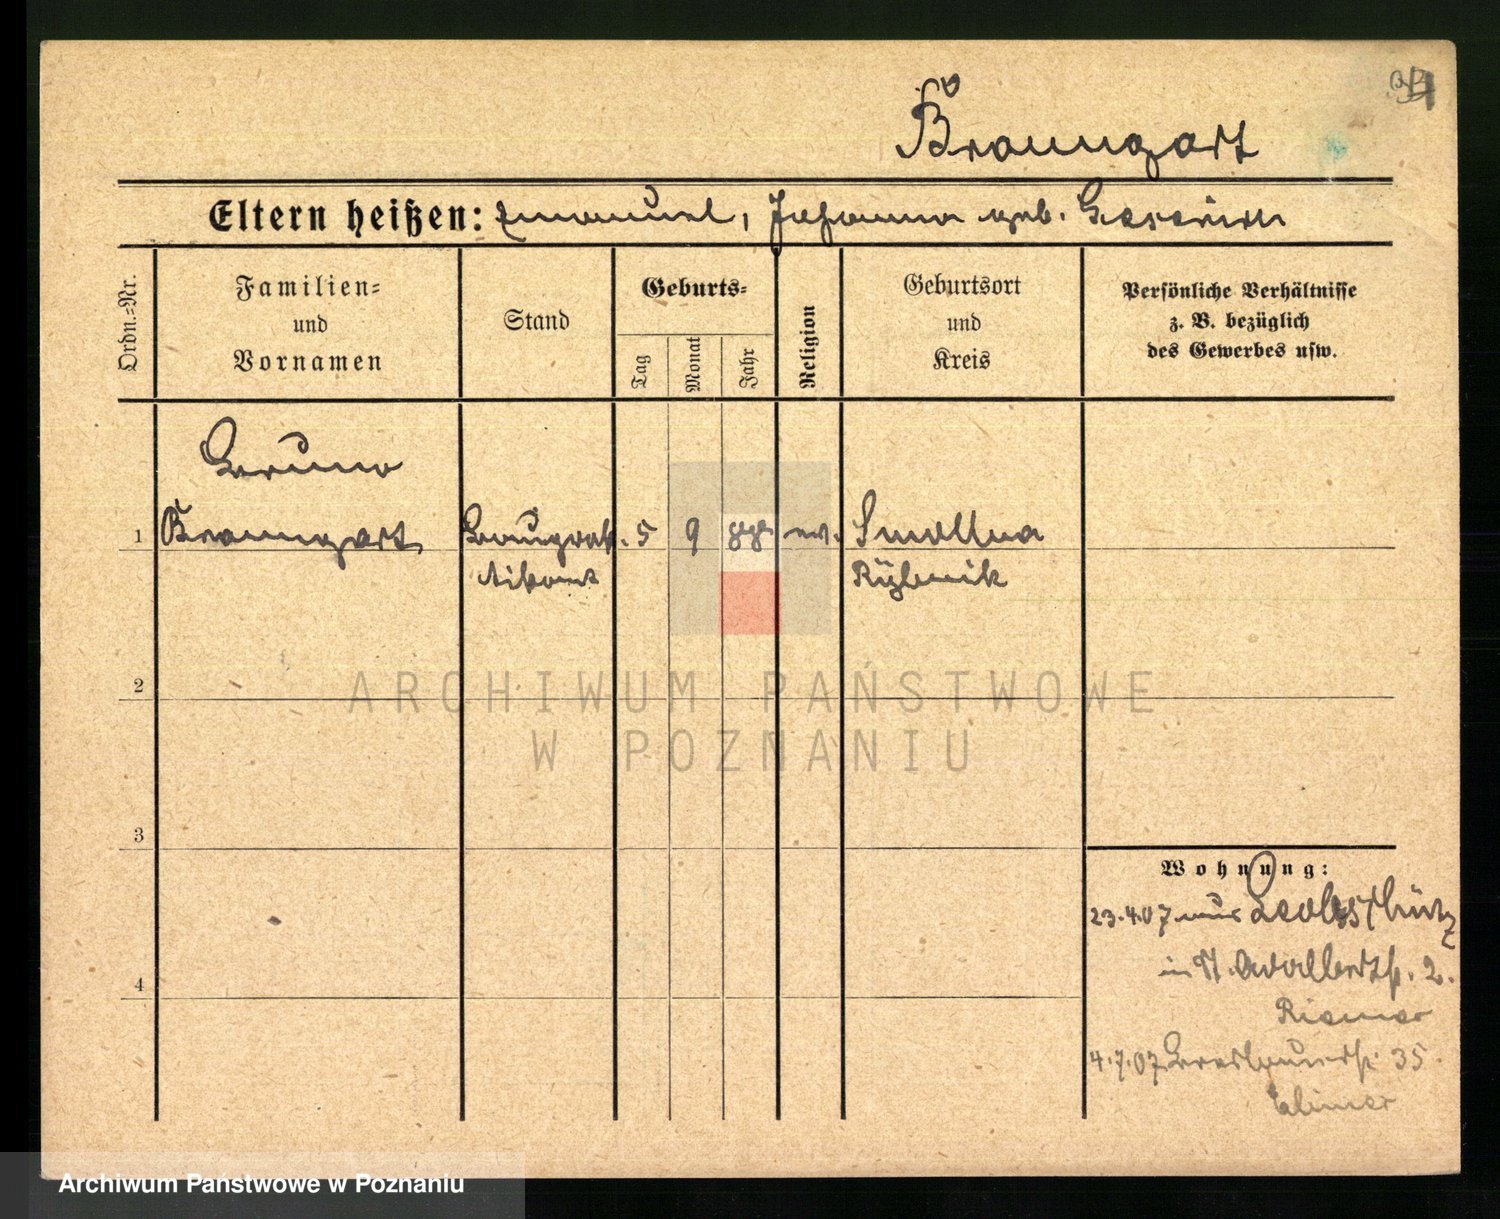 Braungart
Eltern heißen: Emanuel, Johanna geb.
Ordn.-Nr.
Familien-
und
Vornamen
Stand
Geburts-
Tag
Monat
Jahr
Religion
Geburtsort
und
Kreis
Persönliche Verhältnisse
z. B. bezüglich
des Gewerbes usw.
Bruno
1 Braungart 5 9 88 ev. Smollna
Rybnik
2
3
4
Wohnung:
23.4.07 aus Leobschütz
in St. Adalbertstr. 2.
4.7.07 Breslauerstr. 35.
ARCHIWUM PAŃSTWOWE
W POZNANIU
Archiwum Państwowe w Poznaniu